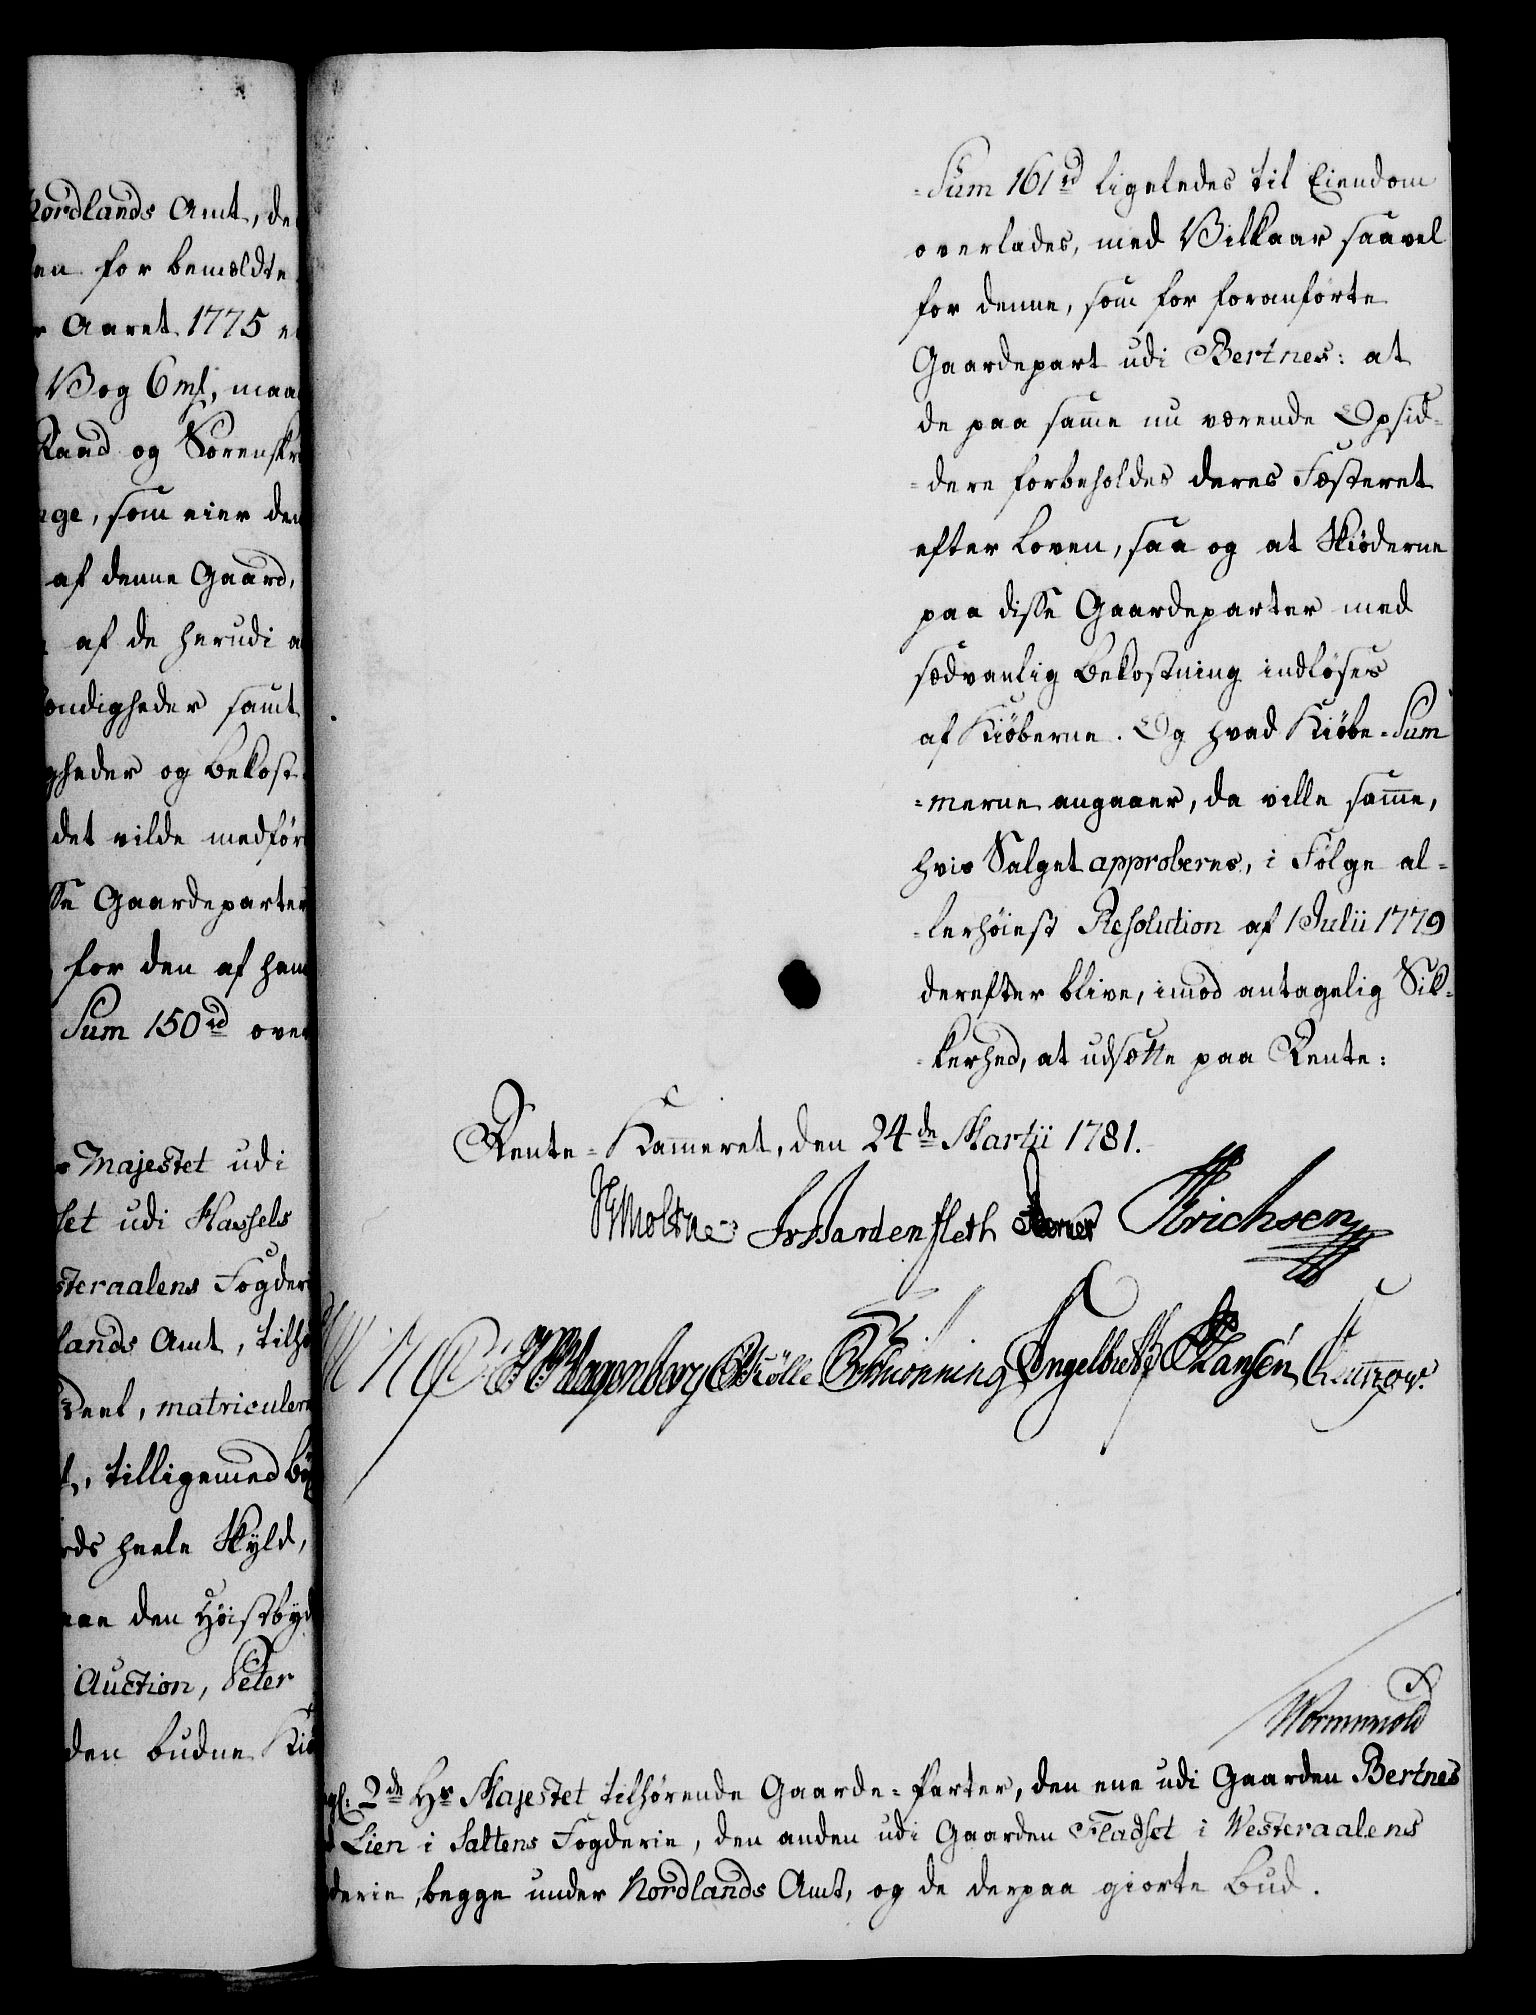 Nordlands Amt, de
for bemeldte
Aaret 1775
Bog 6 mk, maa
Raad og Sorenskr
som eier den
af denne Gaard,
af de herudi
ændigheder samt
gheder og Bekost
det vilde medför
Gaardeparter
for den af ham
Sum 150 rd over
Majestet udi
set udi Hassels
steraalens Fogderi
lands Amt, tilhø
Deel, matriculer
tilligemed
heele Skyld,
den Høistbyd
Auction, Peter
den budne Kiö
-Sum 161 rd ligeledes til Eiendom
overlades, med Vilkaar saavel
for denne, som for foranförte
Gaardepart udi Bertnes: at
de paa samme nu værende Opsid-
-dere forbeholdes deres Fæsteret
efter Loven, saa og at Skiöderne
paa disse Gaardeparter med
sædvanlig Bekostning indlöses
af Kiöberne. Og hvad Kiöbe-Sum
-merne angaaer, da ville samme,
hvis Salget approberes, i Fölge al-
-lerhöiest Resolution af 1 Julii 1779
derefter blive, imod antagelig Sik-
-kerhed, at udsætte paa Rente:
Rente-Kammeret, den 24de Martii 1781.
Moltke Wardenfleth Erichsen
Hagenberg Schönning Engelbreth Hansen
Wormwold
2de Hs Majestet tilhørende Gaarde-Parter, den ene udi Gaarden Bertnes
Lien i Saltens Fogderie, den anden udi Gaarden Fladset i Westeraalens
derie, begge under Nordlands Amt, og de derpaa giorte Bud.